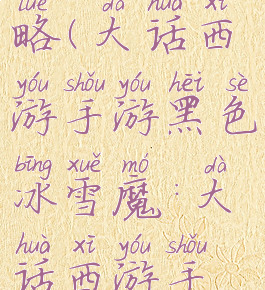 lüè dà huà xī
略(大话西
yóu shǒu yóu hēi sè
游手游黑色
bīng xuě mó dà
冰雪魔:大
huà xī yóu shǒu
话西游手